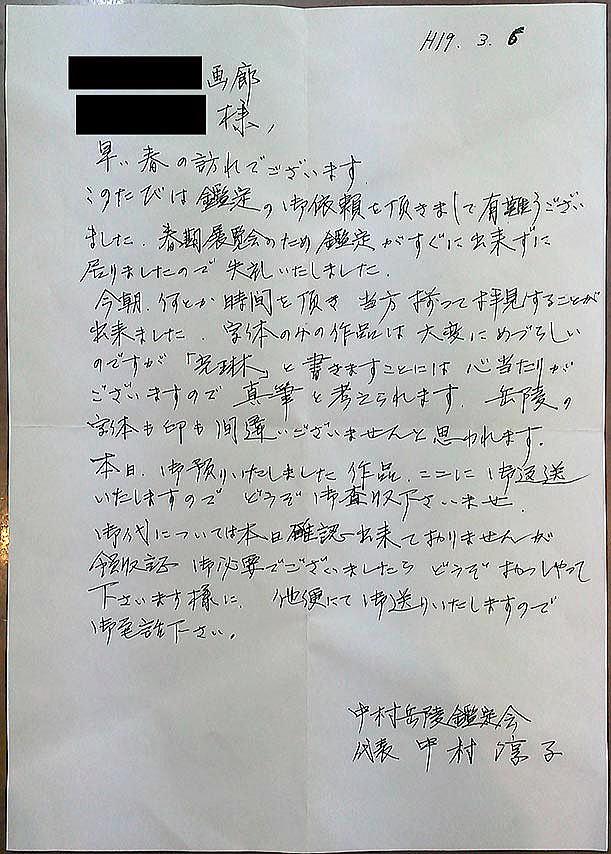 H19. 3. 6
画廊
様,
早い春の訪れでございます.
このたびは鑑定の御依頼を頂きまして有難うござい
ました. 春期展覧会のため鑑定がすぐに出来ずに
居りましたので失礼いたしました.
今朝, 何とか時間を頂き 当方揃って拝見することが
出来ました. 字体のみの作品は大変にめづらしい
のですが「光琳」と書きますことには心当たりが
ございますので真筆と考えられます. 岳陵の
字体も印も間違いございませんと思われます.
本日, 御預りいたしました作品, ここに御返送
いたしますので どうぞ御査収下さいませ.
御代については本日確認出来ておりませんが
領収証 御必要でございましたら どうぞおっしゃって
下さいます様に. 他便にて御送りいたしますので
御電話下さい。
中村岳陵鑑定会
代表 中村 淳子